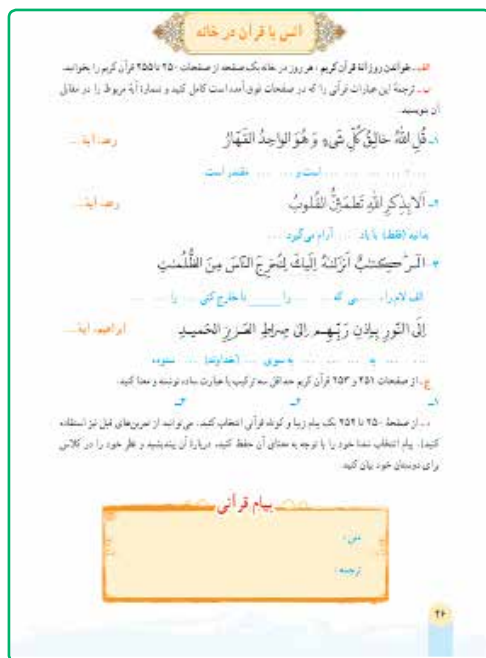 انس با قرآن در خانه
الف ـ خواندن روزانهٔ قرآن کریم ، هر روز در خانه یک صفحه از صفحات ۲۵۰ تا ۲۵۵ قرآن کریم را بخوانید.
ب ـ ترجمهٔ این عبارات قرآنی را که در صفحات فوق آمده است کامل کنید و شمارهٔ آیهٔ مربوط را در مقابل
آن بنویسید.
۱ـ قُلِ اللّٰهُ خالِقُ كُلِّ شَیءٍ وَ هُوَ الواحِدُ القَهّارُ رعد، آیهٔ ...
... : ... ... ... ... است و ... ... مقتدر است.
۲ـ اَلا بِذِكرِ اللّٰهِ تَطمَئِنُّ القُلوبُ رعد، آیهٔ ...
بدانید (فقط) با یاد ... آرام می‌گیرد ...
۳ـ الٓر كِتٰبٌ اَنزَلنٰهُ اِلَيكَ لِتُخرِجَ النّاسَ مِنَ الظُّلُمٰتِ
الف لام را، ... ـی که ... ... را ــــــ تا خارج کنی ... را ... ...
اِلَی النّورِ بِاِذنِ رَبِّهِم اِلىٰ صِراطِ العَزيزِ الحَميدِ ابراهیم، آیهٔ ...
... ... به ... ... ... به سوی ... (خداوند) ... ستوده
ج ـ از صفحات ۲۵۱ و ۲۵۳ قرآن کریم حداقل سه ترکیب یا عبارت ساده نوشته و معنا کنید.
۱ـ ۲ـ ۳ـ
د ـ از صفحهٔ ۲۵۰ تا ۲۵۲ یک پیام زیبا و کوتاه قرآنی انتخاب کنید. (می‌توانید از تمرین‌های قبل نیز استفاده
کنید). پیام انتخاب شده خود را با توجه به معنای آن حفظ کنید، دربارهٔ آن بیندیشید و نظر خود را در کلاس
برای دوستان خود بیان کنید.
پیام قرآنی
متن :
ترجمه :
۲۶